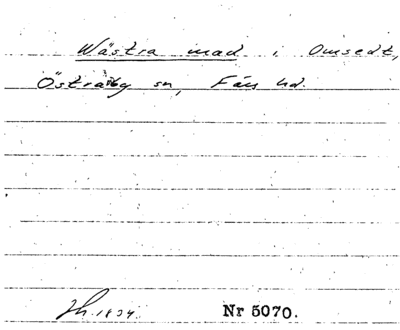 Wästra mad i Omsedt,
Östraby sn, Färs hd.
Jh. 1834. Nr 5070.